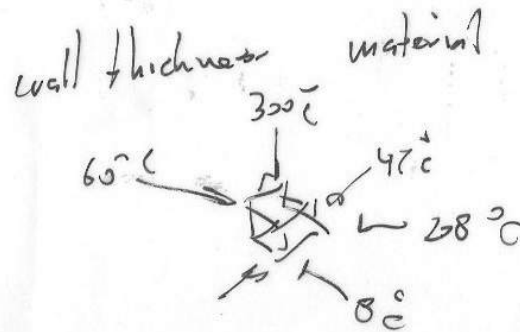 wall thickness material
300°C
60°C 47°C
208°C
8°C